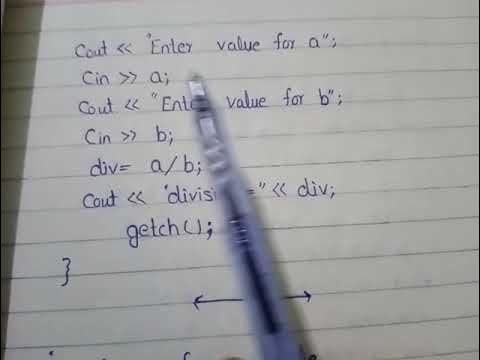 Cout << "Enter value for a";
Cin >> a;
Cout << "Enter value for b";
Cin >> b;
div= a/b;
Cout << "division=" << div;
getch();
}